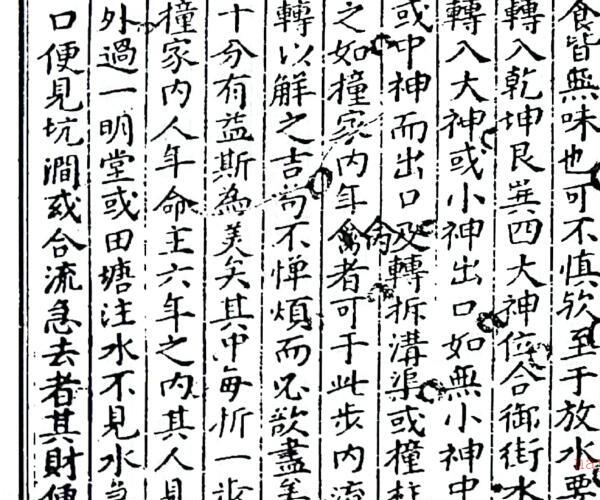 食皆無味也可不慎欤至于放水要
轉入乾坤艮巽四大神位合御街水
轉入大神或小神出口如無小神中
或中神而出口及轉折溝渠或橦
之如橦家内年禽者可于此步内流
轉以解之吉尚不惮煩而必欲盡
十分有益斯為美矣其中每折一步
橦家内人年命主六年之内其人
外過一明堂或田塘注水不見水
口便見坑澗或合流急去者其財便